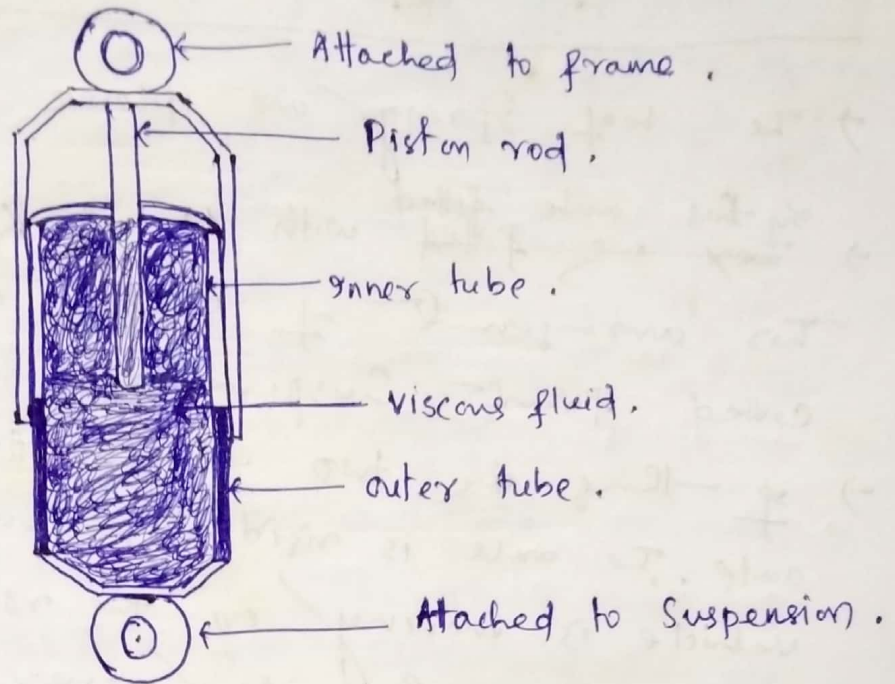 Attached to frame.
Piston rod.
Inner tube.
Viscous fluid.
outer tube.
Attached to Suspension.